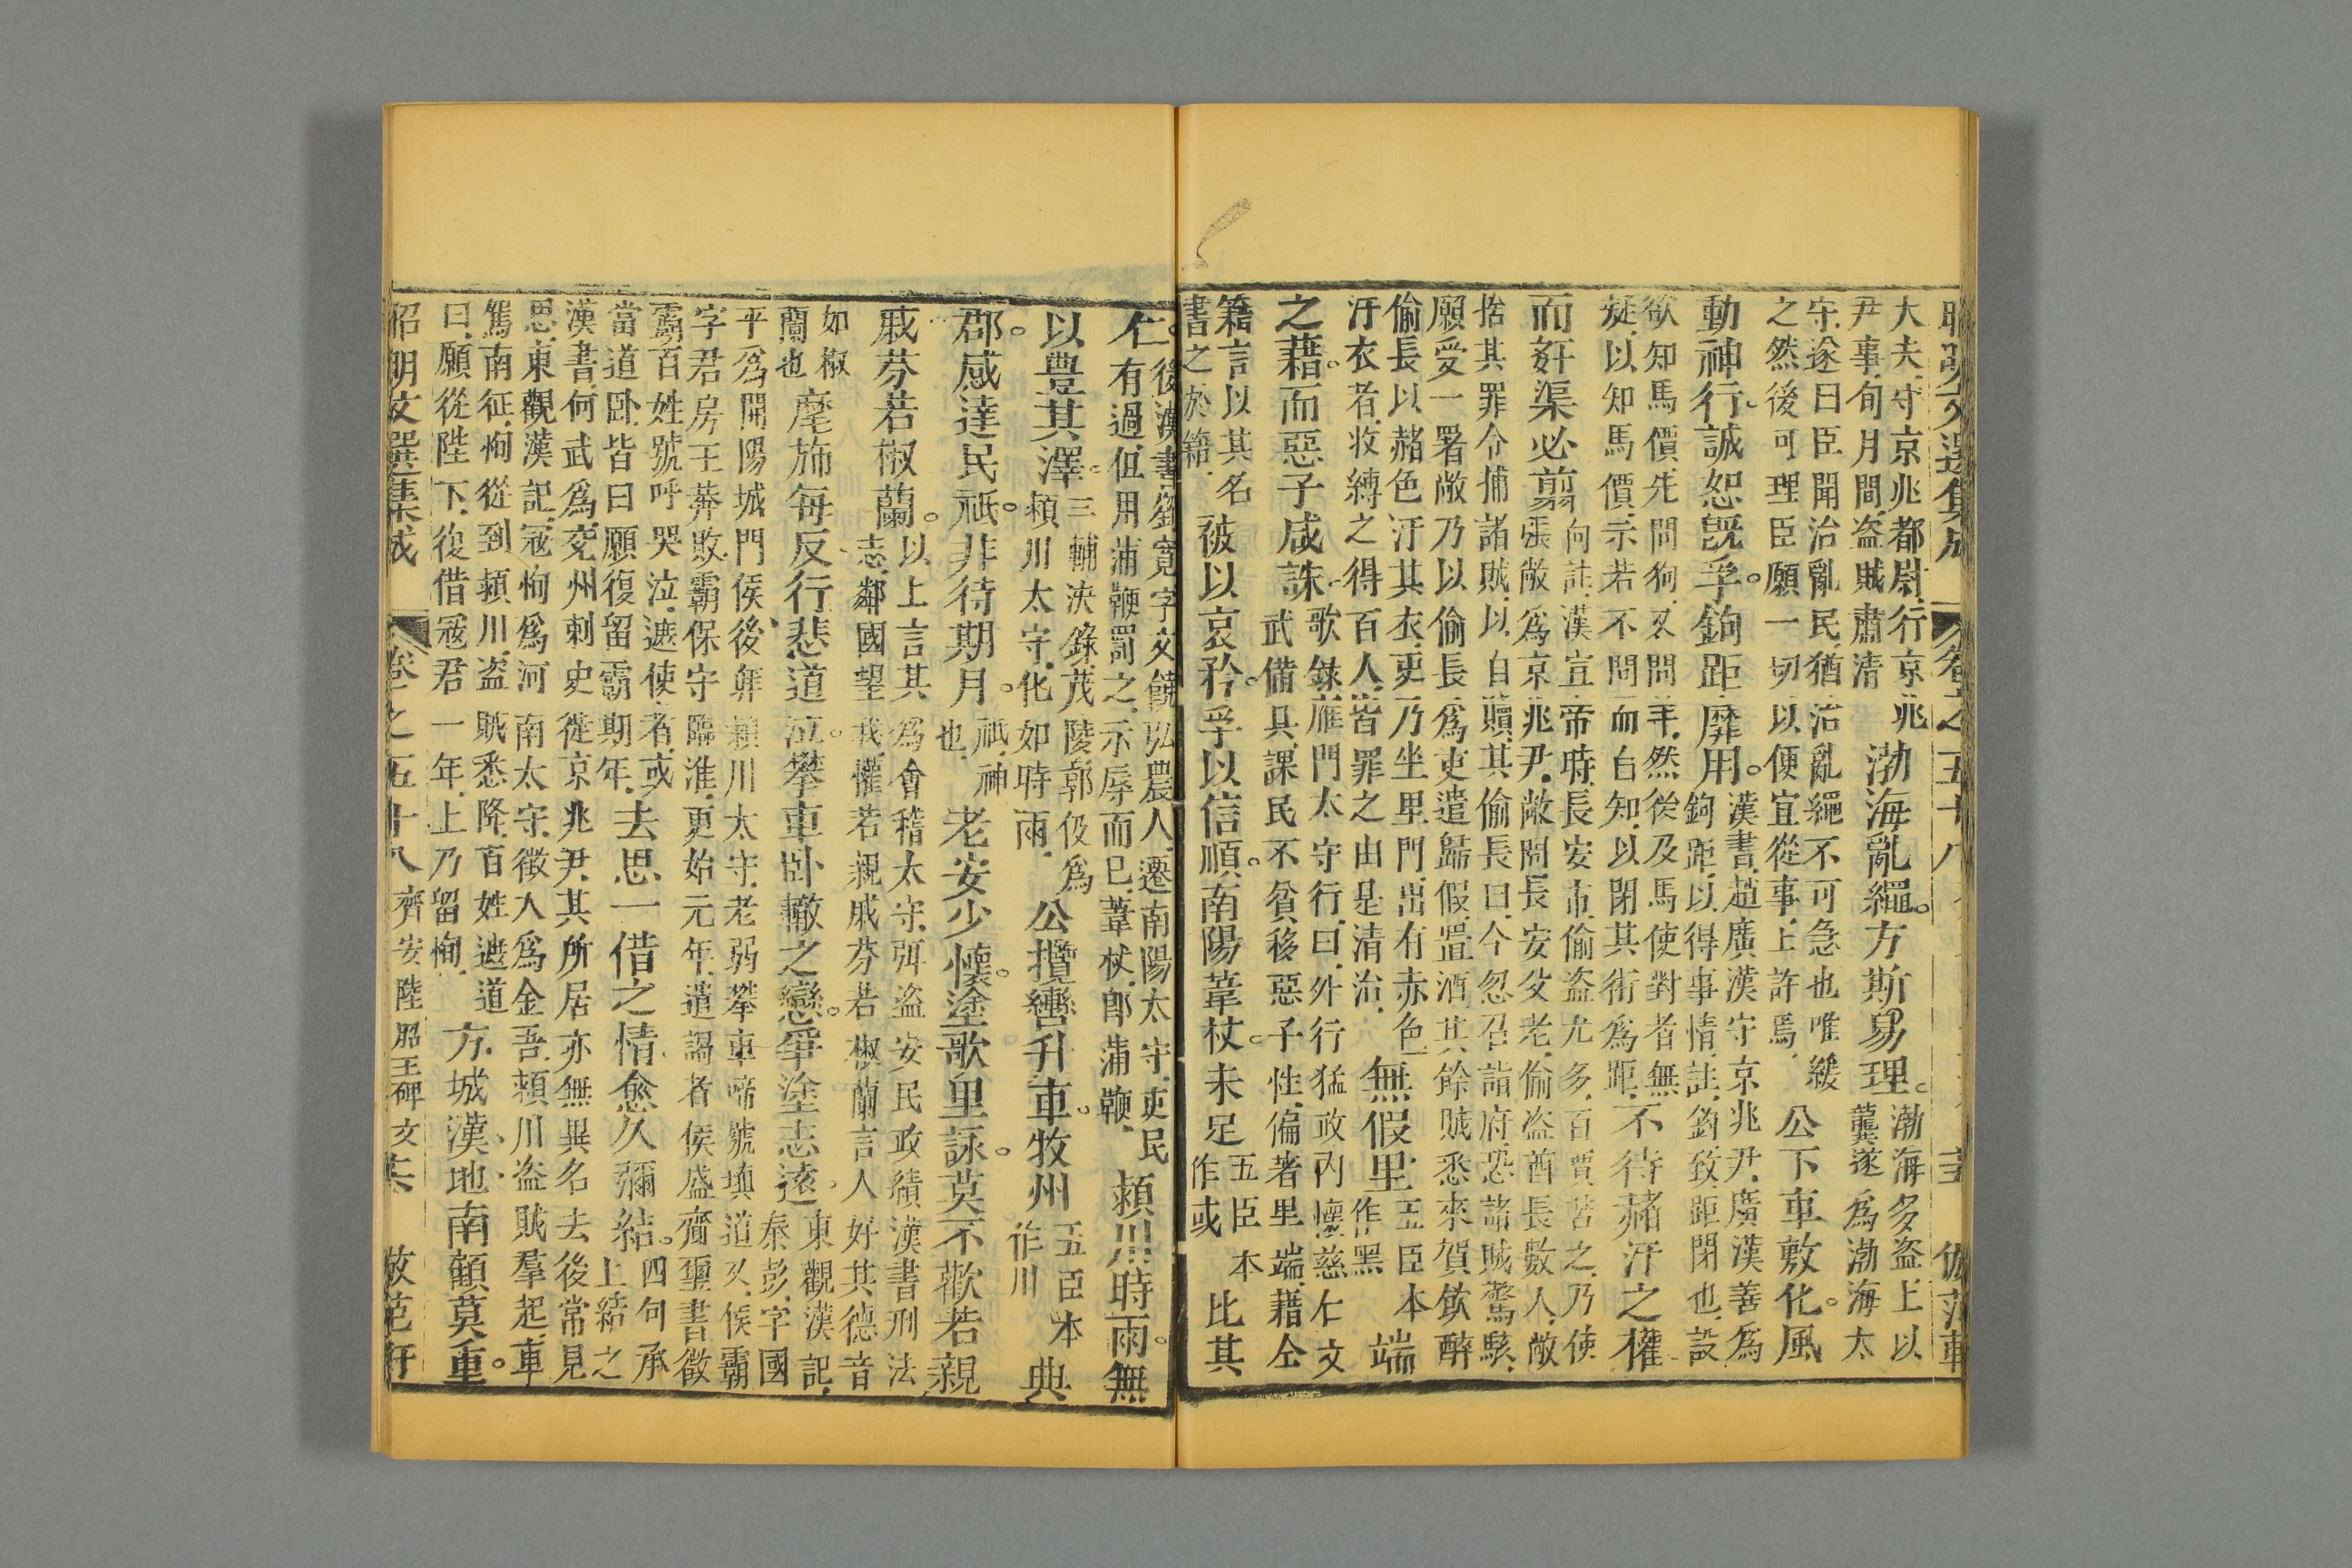 昭明文選集成 卷之五十八 倣范軒
大夫守京兆都尉行京兆
尹事旬月間盗賊肅清
渤海亂繩。方斯易理。
渤海多盗上以
龔遂爲渤海太
守遂曰臣聞治亂民猶治亂繩不可急也唯緩
之然後可理臣願一切以便宜從事上許焉
公下車敷化。風
動神行。誠恕旣孚。鉤距靡用。
漢書趙廣漢守京兆尹廣漢善爲
鉤距以得事情註鉤致距閉也設
欲知馬價先問狗又問羊然後及馬使對者無
疑以知馬價示若不問而自知以閉其術爲距
不待赭汙之權
而姧渠必翦
向註漢宣帝時長安市偷盗尤多百賈苦之乃使
張敞爲京兆尹敞問長安父老偷盗酋長數人敞
捨其罪令捕諸賊以自贖其偷長曰今忽召詣府恐諸賊驚駭
願受一署敞乃以偷長爲吏遣歸假置酒其餘賊悉來賀飲醉
偷長以赭色汙其衣吏乃坐里門出有赤色
汙衣者收縛之得百人皆罪之由是清治
無假里
五臣本
作黑
端
之藉。而惡子咸誅。
歌録雁門太守行曰外行猛政内懷慈仁文
武備具課民不貧移惡子性偏著里端藉仝
籍言以其名
書之於籍
被以哀矜。孚以信順。南陽葦杖。未足
五臣本
作或
比其
仁。
後漢書劉寬字文饒弘農人遷南陽太守吏民
有過但用蒲鞭罰之示辱而已葦杖郎蒲鞭
潁川時雨。無
以豊其澤。
三輔決錄茂陵郭伋爲
潁川太守化如時雨
公攬轡升車。牧州
五臣本
作川
典
郡。感達民祇。非待期月。
祇神
也
老安少懷。塗歌里詠。莫不歡若親
戚芬若椒蘭。
以上言其爲會稽太守弭盗安民政績漢書刑法
志鄰國望我懽若親戚芬若椒蘭言人好其德音
如椒
蘭也
麾斾每反行悲道泣。攀車卧轍之戀。爭塗忘遠。
東觀漢記
秦彭字國
平爲開陽城門侯後拜潁川太守老弱攀車啼號填道又侯霸
字君房王莽敗霸保守臨淮更始元年遣謁者侯盛齎璽書徵
霸百姓號呼哭泣遮使者或
當道卧皆曰願復留霸期年
去思一借之情愈久彌結。
四句承
上結之
漢書何武爲兗州刺史徙京兆尹其所居亦無異名去後常見
思東觀漢記冦恂爲河南太守徵入爲金吾潁川盗賊羣起車
駕南征恂從到潁川盗賊悉降百姓遮道
曰願從陛下復借冦君一年上乃留恂
方城漢地南顧莫重。
昭明文選集成 卷之五十八 齊安陸昭王碑文 倣范軒